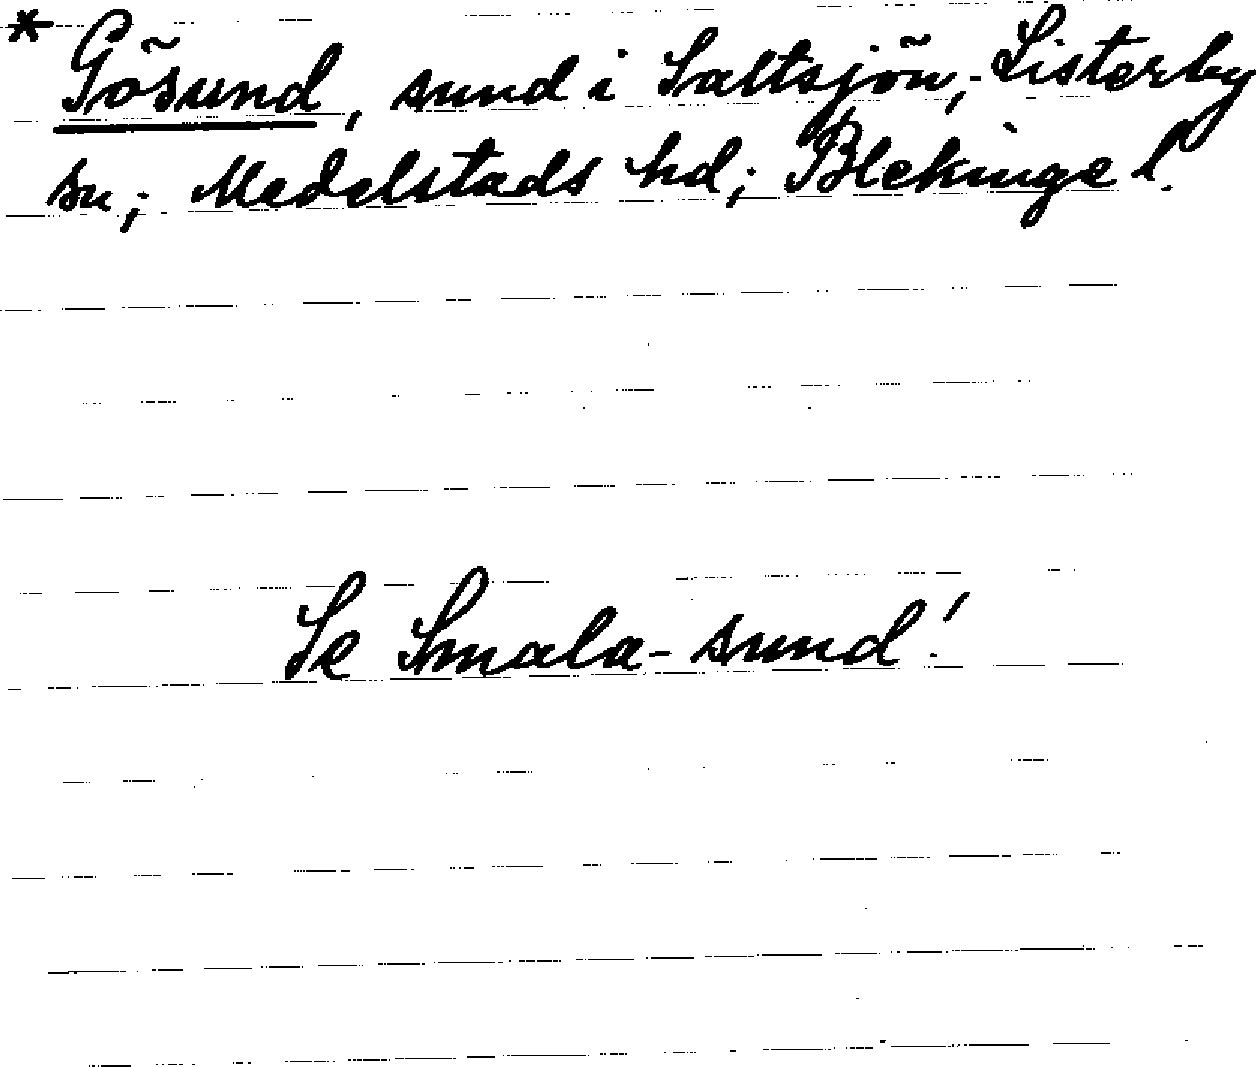 * Gösund, sund i Saltsjön, Listerby
sn; Medelstads hd; Blekinge l.
Se Smala-sund!